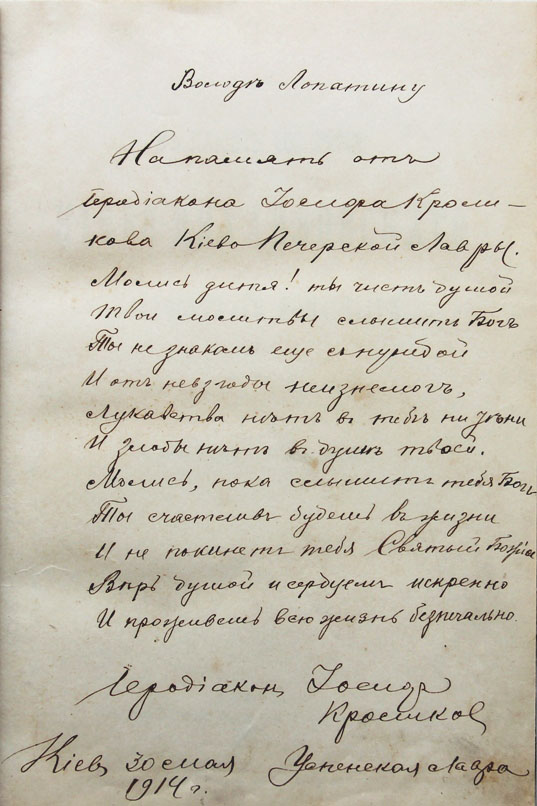 Володѣ Лопатину
На память отъ
Іеродіакона Іосифа Кроли-
кова Кіево Печерской Лавры.
Молись дитя! ты чистъ душой
Твои молитвы слышитъ Богъ
Ты не знакомъ еще съ нуждой
И отъ невзгоды неизнемогъ,
Лукавства нѣтъ въ тебѣ ни
И злобы нѣтъ въ душѣ твоей.
Молись, пока слышитъ тебя Богъ
Ты счастливъ будешь въ жизни
И не покинетъ тебя Святый
Вѣрь душой и сердцемъ искренно
И проживешь всю жизнь безпечально
Іеродіаконъ Іосифъ
Кроликовъ
Кіевъ 30 мая Успенская Лавра
1914 г.